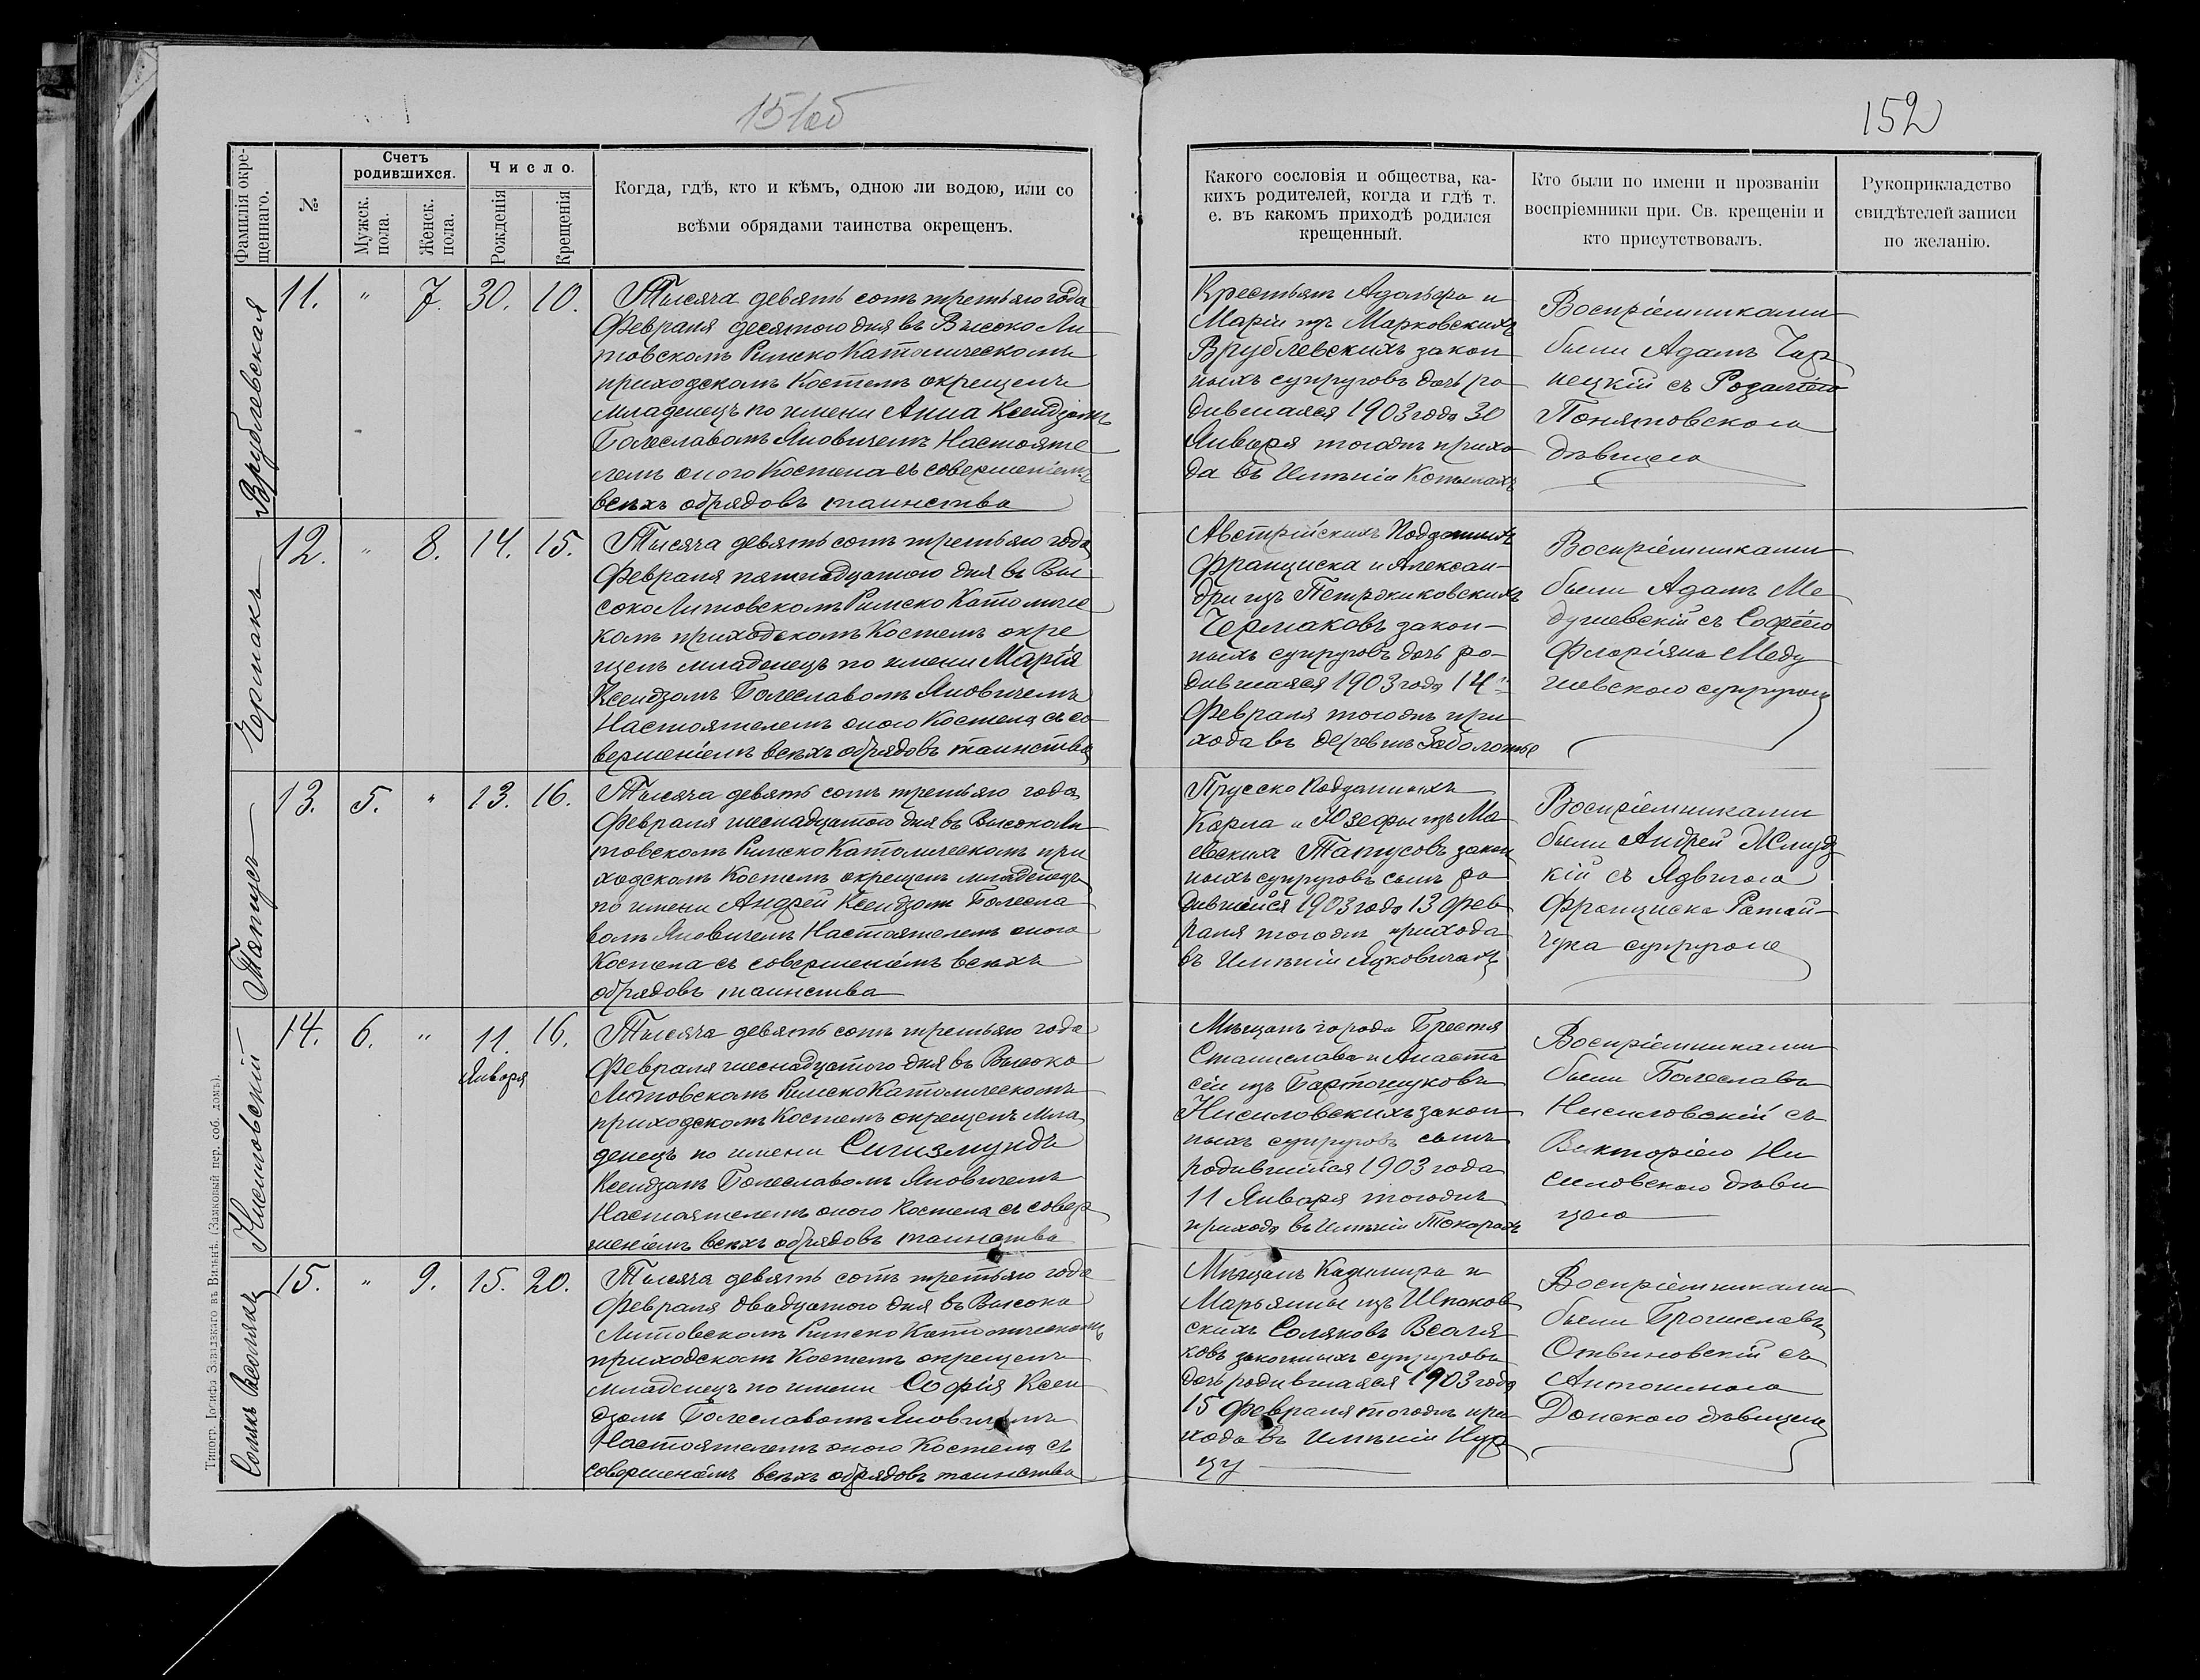 151об
152
Фамилія окре-
щеннаго.
№
Счетъ
родившихся.
Мужск.
пола.
Женск.
пола.
Число.
Рожденія
Крещенія
Когда, гдѣ, кто и кѣмъ, одною ли водою, или со
всѣми обрядами таинства окрещенъ.
Какого сословія и общества, ка-
кихъ родителей, когда и гдѣ т.
е. въ какомъ приходѣ родился
крещенный.
Кто были по имени и прозваніи
воспріемники при. Св. крещеніи и
кто присутствовалъ.
Рукоприкладство
свидѣтелей записи
по желанію.
Врублевская
11. " 7. 30. 10.
Тысяча девять сотъ третьяго года
Февраля десятого дня въ Высоко Ли
товскомъ Римско Католическомъ
приходскомъ Костелѣ окрещенъ
младенецъ по имени Анна Ксендзомъ
Болеславомъ Яновичемъ Настояте
лемъ оного Костела съ совершеніемъ
всѣхъ обрядовъ таинства
Крестьянъ Адольфа и
Маріи изъ Марковскихъ
Врублевскихъ закон
ныхъ супруговъ дочь ро
дившаяся 1903 года 30
Января тогожъ прихо
да въ Имѣніи Котелахъ
Воспріемниками
были Адамъ Чар
нецкій съ Розаліею
Понятовскою
дѣвицею
Чермакъ
12. " 8. 14. 15.
Тысяча девять сотъ третьяго года
Февраля пятнадцатого дня въ Вы
соко Литовскомъ Римско Католичес
комъ приходскомъ Костелѣ окре
щенъ младенецъ по имени Марія
Ксендзомъ Болеславомъ Яновичемъ
Настоятелемъ оного Костела съ со
вершеніемъ всѣхъ обрядовъ таинства
Австрійскихъ Подданныхъ
Франциска и Алексан-
дри изъ Петрожиковскихъ
Чермаковъ закон-
ныхъ супруговъ дочь ро-
дившаяся 1903 года 14
Февраля тогожъ при
хода въ деревнѣ Заболотье
Воспріемниками
были Адамъ Ме
душевскій съ Софіею
Флоріяна Меду
шевскою супругою
Тапусъ
13. 5. " 13. 16.
Тысяча девять сотъ третьяго года
Февраля шеснадцатого дня въ Высоко Ли
товскомъ Римско Католическомъ при
ходскомъ Костелѣ окрещенъ младенецъ
по имени Андрей Ксендзомъ Болесла
вомъ Яновичемъ Настоятелемъ оного
Костела съ совершеніемъ всѣхъ
обрядовъ таинства
Прусско Подданныхъ
Карла и Юзефы изъ Ма
евскихъ Тапусовъ закон
ныхъ супруговъ сынъ ро
дившійся 1903 года 13 Фев
раля тогожъ прихода
въ Имѣніи Яцковичахъ
Воспріемниками
были Андрей Жмудз
кій съ Ядвигою
Франциска Ратай-
чука супругою
Нисиловскій
14. 6. " 11 16.
Января
Тысяча девять сотъ третьяго года
Февраля шеснадцатого дня въ Высоко
Литовскомъ Римско Католическомъ
приходскомъ Костелѣ окрещенъ мла
денецъ по имени Сигизмундъ
Ксендзомъ Болеславомъ Яновичемъ
Настоятелемъ оного Костела съ совер
шеніемъ всѣхъ обрядовъ таинства
Мѣщанъ города Бреста
Станислава и Анаста
сіи изъ Бартошуковъ
Нисиловскихъ закон
ныхъ супруговъ сынъ
родившійся 1903 года
11 Января тогожъ
прихода въ Имѣніи Токарахъ
Воспріемниками
были Болеславъ
Нисиловскій съ
Викторіею Ни
силовскою дѣви
цею
Солякъ Весолякъ
15. " 9. 15. 20.
Тысяча девять сотъ третьяго года
Февраля двадцатого дня въ Высоко
Литовскомъ Римско Католическомъ
приходскомъ Костелѣ окрещенъ
младенецъ по имени Софія Ксен
дзомъ Болеславомъ Яновичемъ
Настоятелемъ оного Костела съ
совершеніемъ всѣхъ обрядовъ таинства
Мѣщанъ Казимира и
Марьянны изъ Шпаков
скихъ Соляковъ Весоля
ковъ законныхъ супруговъ
дочь родившаяся 1903 года
15 Февраля тогожъ при
хода въ Имѣніи Нур
цу
Воспріемниками
были Брониславъ
Отвиновскій съ
Антониною
Донскою дѣвицею
Типогр. Іосифа Завадзкаго въ Вильнѣ. (Замковый пер. соб. домъ).